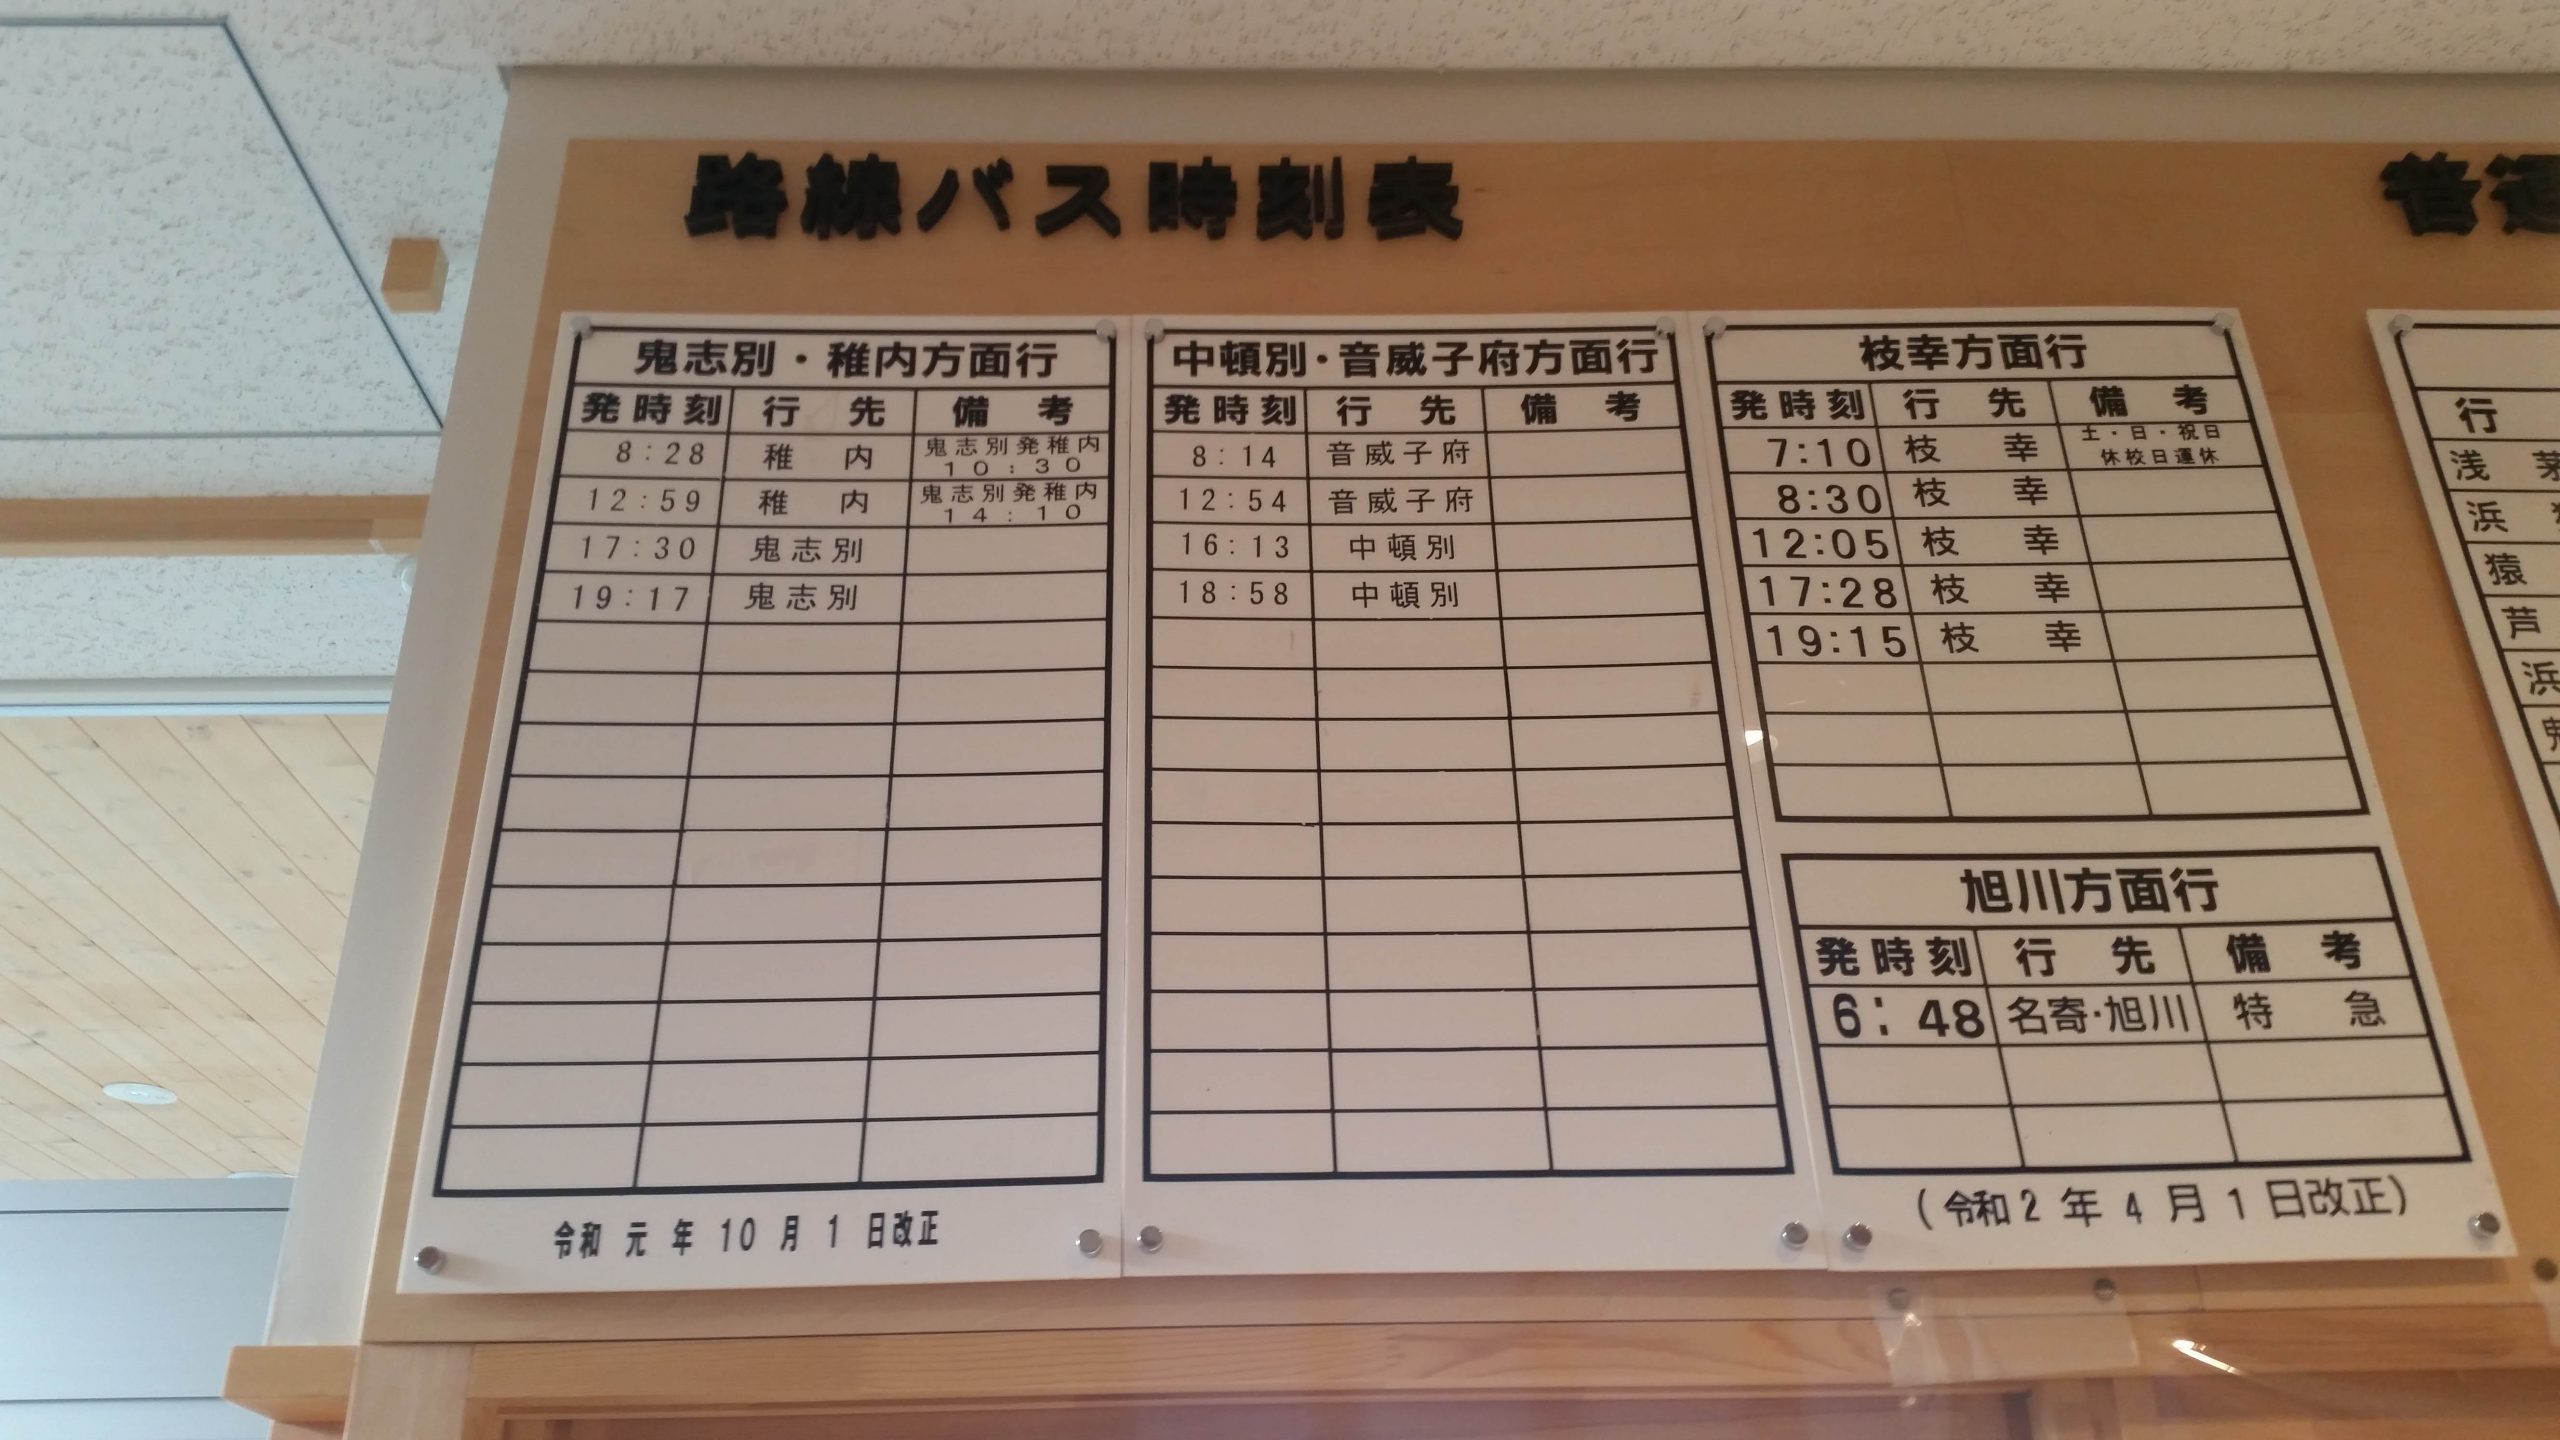 路線バス時刻表
普通
鬼志別・稚内方面行
発時刻 行先 備考
8:28 稚内 鬼志別発稚内
10:30
12:59 稚内 鬼志別発稚内
14:10
17:30 鬼志別
19:17 鬼志別
令和元年10月1日改正
中頓別・音威子府方面行
発時刻 行先 備考
8:14 音威子府
12:54 音威子府
16:13 中頓別
18:58 中頓別
枝幸方面行
発時刻 行先 備考
7:10 枝幸 土・日・祝日
休校日運休
8:30 枝幸
12:05 枝幸
17:28 枝幸
19:15 枝幸
旭川方面行
発時刻 行先 備考
6:48 名寄・旭川 特急
(令和2年4月1日改正)
行
浅茅
浜
猿
芦
浜
鬼